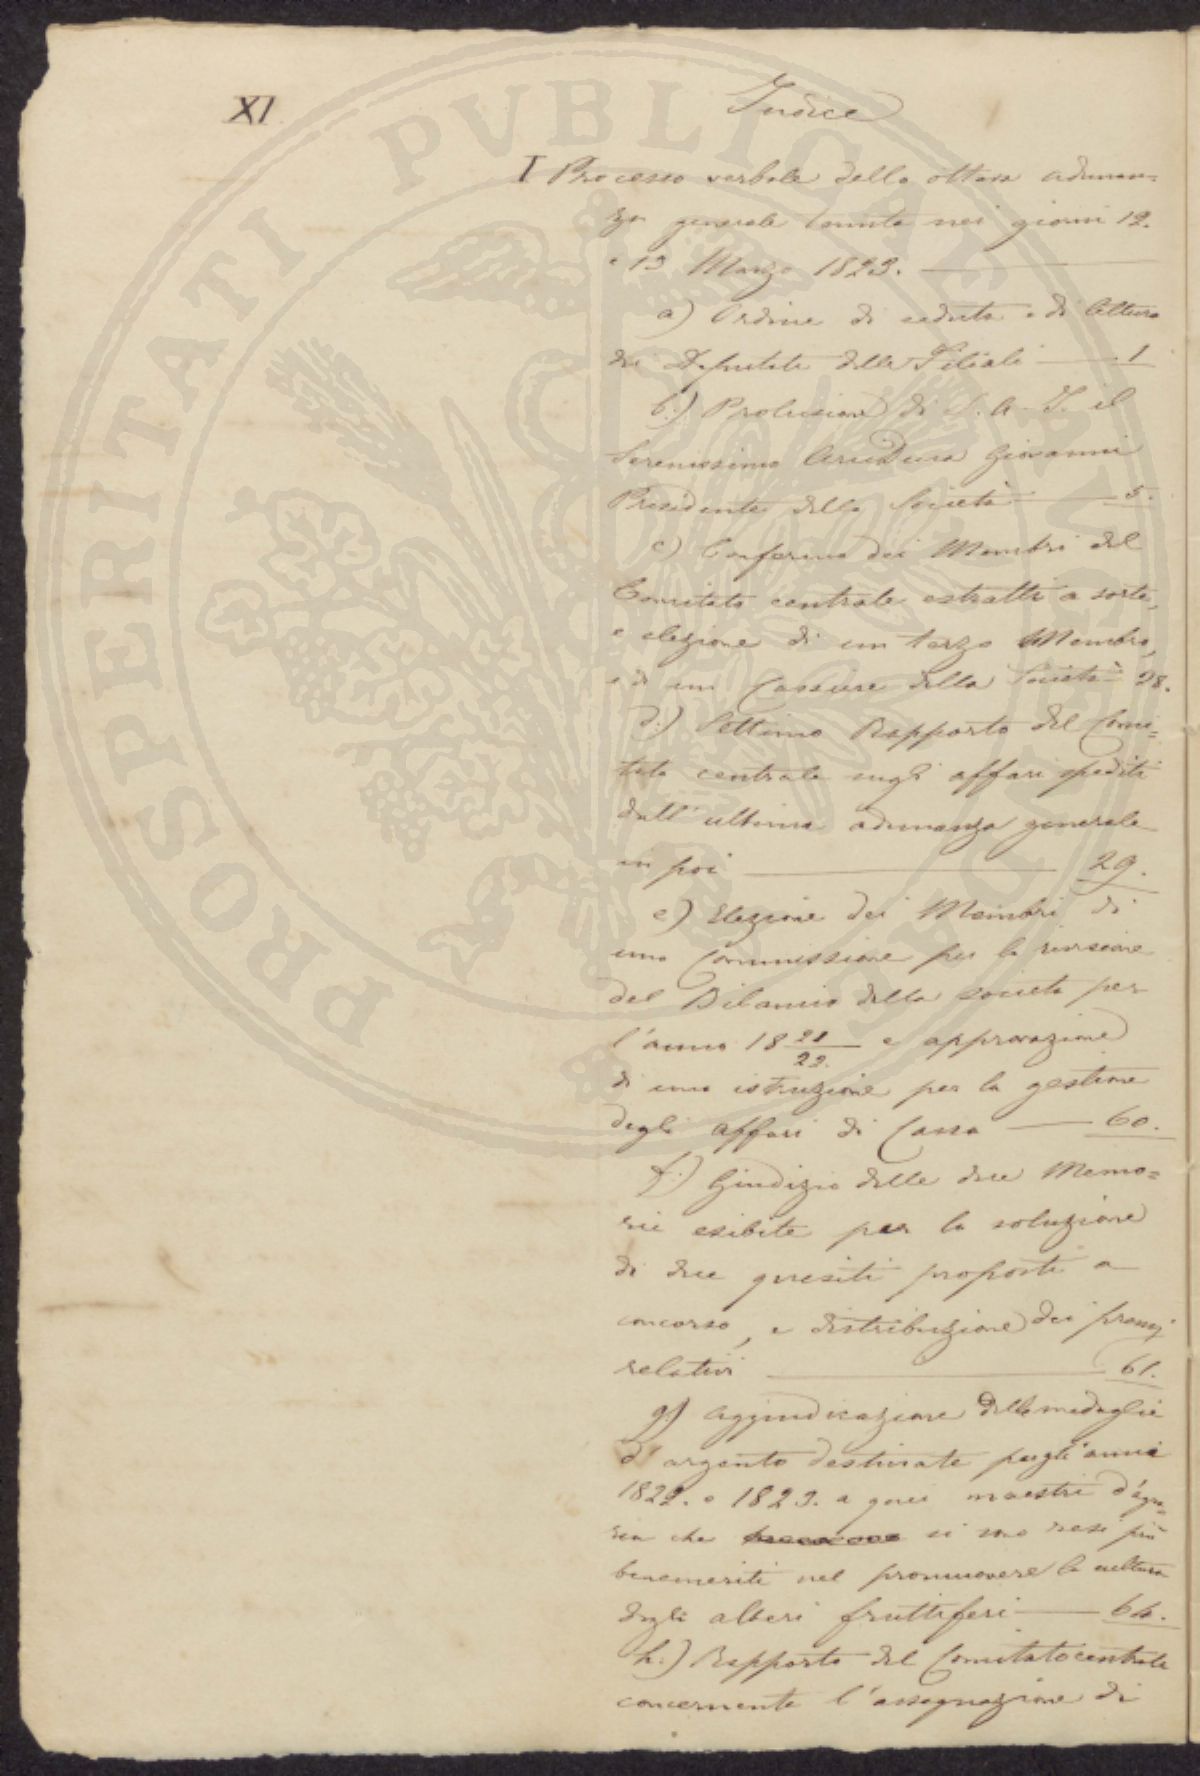 XI
Indice
I Processo verbale della ottava adunan=
za generale tenuta nei giorni 12.
e 13 Marzo 1823.
a) Ordine di seduta e di lettura
dei Deputati delle Filiali 1
b.) Prolusione di S. A. I. il
Serenissimo Arciduca Giovanni
Presidente della Società 5.
c) Conferma dei Membri del
Comitato centrale estratti a sorte,
e elezione di un terzo Membro,
e di un Cassiere della Società 28.
d.) Settimo Rapporto del Comi=
tato centrale sugli affari spediti
dall'ultima adunanza generale
in poi 29.
e) Elezione dei Membri di
una Commissione per la revisione
del Bilancio della Società per
l'anno 18 21/22. e approvazione
di una istruzione per la gestione
degli affari di Cassa 60.
f.) Giudizio delle due Memo=
rie esibite per la soluzione
di due quesiti proposti a
concorso, e distribuzione dei premj
relativi 61.
g.) Aggiudicazione delle medaglie
d'argento destinate pegli anni
1822. e 1823. a quei maestri d'agra=
ria che si sono resi più
benemeriti nel promuovere la cultura
degli alberi fruttiferi 64.
h.) Rapporto del Comitato centrale
concernente l'assegnazione di
PROSPERITATI PVBLICAE